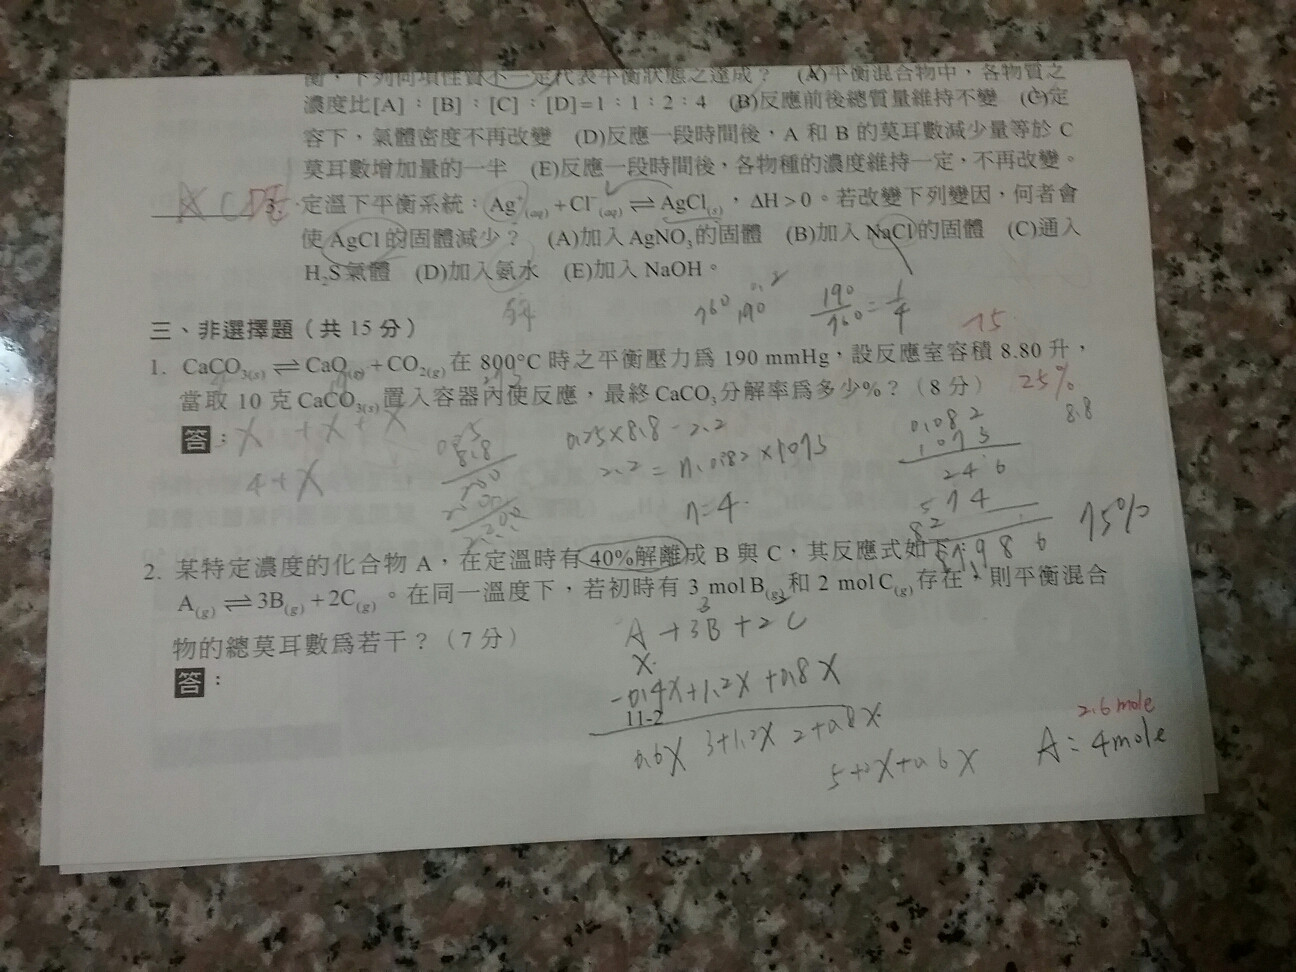 衡，下列何項性質不一定代表平衡狀態之達成？ (A)平衡混合物中，各物質之
濃度比[A]：[B]：[C]：[D]=1：1：2：4 (B)反應前後總質量維持不變 (C)定
容下，氣體密度不再改變 (D)反應一段時間後，A 和 B 的莫耳數減少量等於 C
莫耳數增加量的一半 (E)反應一段時間後，各物種的濃度維持一定，不再改變。
3. 定溫下平衡系統：Ag⁺(aq)+Cl⁻(aq)⇌AgCl(s)，ΔH>0。若改變下列變因，何者會
使 AgCl 的固體減少？ (A)加入 AgNO₃的固體 (B)加入 NaCl 的固體 (C)通入
H₂S氣體 (D)加入氨水 (E)加入 NaOH。
760 190
190/760=1/4
三、非選擇題（共 15 分）
15
1. CaCO₃(s)⇌CaO(s)+CO₂(g) 在 800°C 時之平衡壓力為 190 mmHg，設反應室容積 8.80 升，
當取 10 克 CaCO₃(s) 置入容器內使反應，最終 CaCO₃分解率為多少%？（8 分）
25%
答：
X +X+X
4+X
0.25×8.8=2.2
2.2=n.0.082×1073
n=4.
0.082
1073
246
574
82
8.8
75%
2. 某特定濃度的化合物 A，在定溫時有 40%解離成 B 與 C，其反應式如下：
A(g)⇌3B(g)+2C(g)。在同一溫度下，若初時有 3 mol B(g) 和 2 mol C(g) 存在，則平衡混合
物的總莫耳數為若干？（7 分）
答：
A+3B+2C
X
-0.4X+1.2X+0.8X
11-2
0.6X 3+1.2X 2+0.8X
5+2X+0.6X
2.6 mole
A=4mole